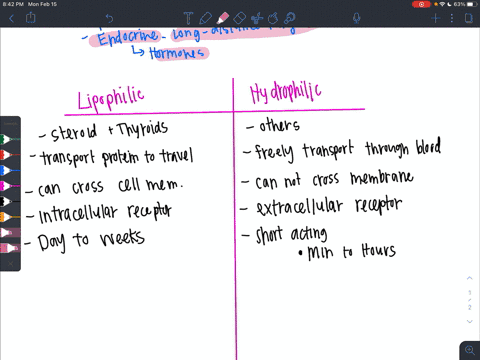 8:42 PM Mon Feb 15
63%
- Endocrine - long-
↳ Hormones
Lipophilic
- steroid + Thyroids
- transport protein to travel
- can cross cell mem.
- intracellular receptor
- Day to weeks
Hydrophilic
- others
- freely transport through blood
- can not cross membrane
- extracellular receptor
- short acting
• Min to Hours
1
2